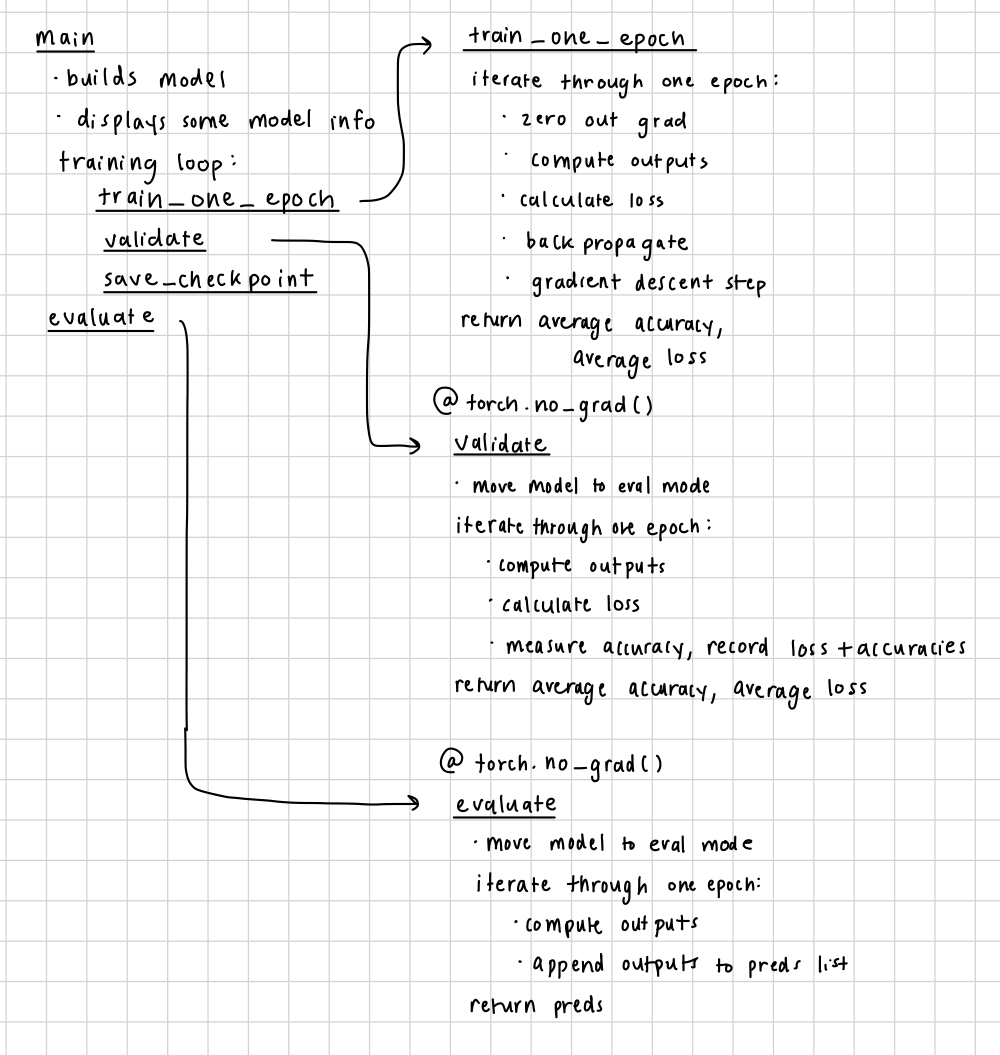 main
· builds model
· displays some model info
training loop:
train_one_epoch
validate
save_checkpoint
evaluate
train_one_epoch
iterate through one epoch:
· zero out grad
· compute outputs
· calculate loss
· back propagate
· gradient descent step
return average accuracy,
average loss
@torch.no_grad()
validate
· move model to eval mode
iterate through one epoch:
· compute outputs
· calculate loss
· measure accuracy, record loss + accuracies
return average accuracy, average loss
@torch.no_grad()
evaluate
· move model to eval mode
iterate through one epoch:
· compute outputs
· append outputs to preds list
return preds